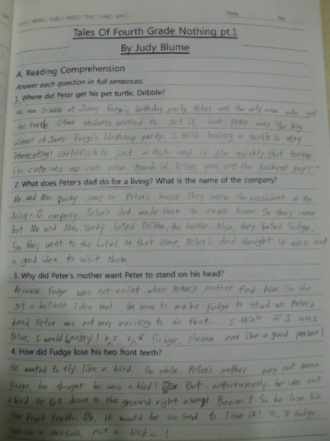 Date No
Tales Of Fourth Grade Nothing pt.1
By Judy Blume
A. Reading Comprehension
Answer each question in full sentences.
1. Where did Peter get his pet turtle, Dribble?
He won Dribble at Jimmy Fargo's birthday party. Peter was the only one who got
the turtle. Other students wanted to get it, but Peter was the big
winner at Jimmy Fargo's birthday party. I think having a turtle is very
interesting! Goldfish is just a fish and it die quickly. But turtle
is cute and we can also touch it. Peter, you are the luckiest guy!!
2. What does Peter's dad do for a living? What is the name of the company?
Mr and Mrs. Yarby came to Peter's house. They were the president of the
Juicy-O company. Peter's dad made them to come home. So they came.
But Mr and Mrs. Yarby hated Dribble, the turtle. Also, they hated Fudge.
So they went to the hotel. At that time, Peter's dad thought it was not
a good idea to visit them.
3. Why did Peter's mother want Peter to stand on his head?
Because Fudge was not quiet when Peter's mother find him. So she
got a brilliant idea that she have to make Fudge to stand on Peter's
head. Peter was not very exciting to do that... I think if I was
Peter, I would Fudge, please eat like a good person!
4. How did Fudge lose his two front teeth?
He wanted to fly like a bird. So while Peter's mother was not some
Fudge, he thought he was a bird! But unfortunately, he was not
a bird. He fell down to the ground right away! Boom! So he lose his
two front teeth. Oh, it would be so sad to lose it! Fudge,
you are a person, not a bird...!